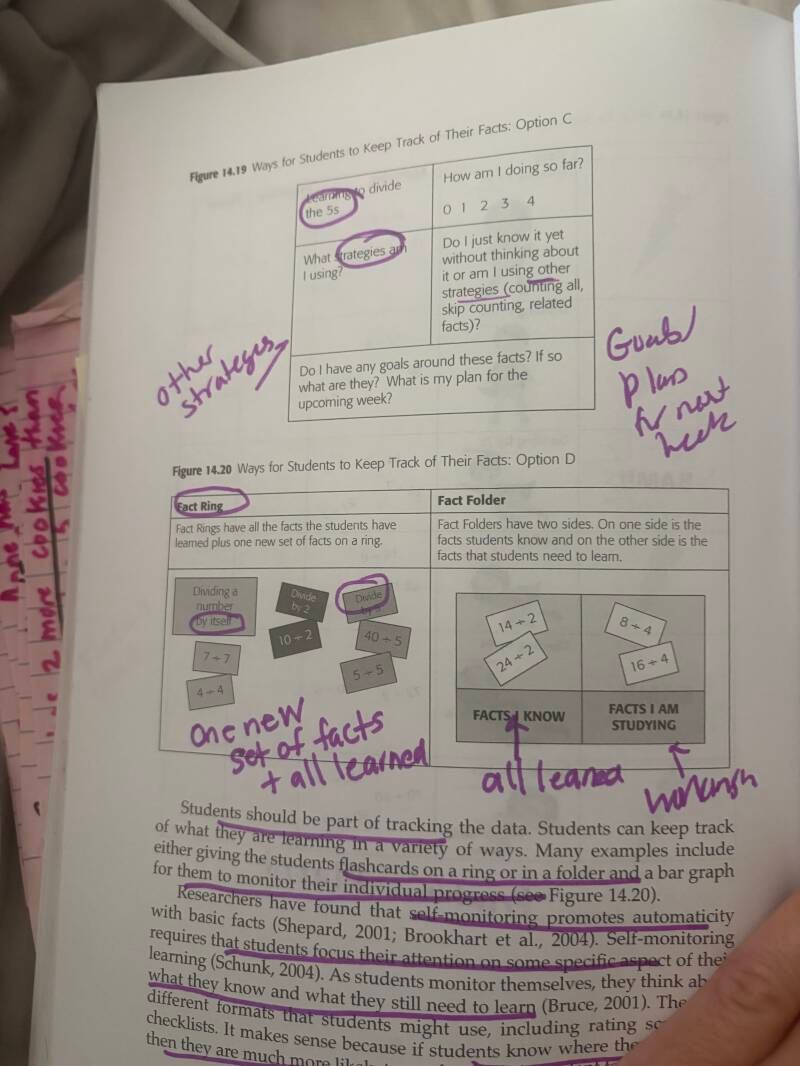 Figure 14.19 Ways for Students to Keep Track of Their Facts: Option C
Learning to divide
the 5s
How am I doing so far?
0 1 2 3 4
What strategies am
I using?
Do I just know it yet
without thinking about
it or am I using other
strategies (counting all,
skip counting, related
facts)?
other
strategies
Do I have any goals around these facts? If so
what are they? What is my plan for the
upcoming week?
Goals/
plan
for next
week
Figure 14.20 Ways for Students to Keep Track of Their Facts: Option D
Fact Ring
Fact Rings have all the facts the students have
learned plus one new set of facts on a ring.
Fact Folder
Fact Folders have two sides. On one side is the
facts students know and on the other side is the
facts that students need to learn.
Dividing a
number
by itself
7÷7
4÷4
Divide
by 2
10÷2
Divide
by
40÷5
5÷5
14÷2
24÷2
FACTS I KNOW
8÷4
16÷4
FACTS I AM
STUDYING
one new
set of facts
+ all learned
all learned
Students should be part of tracking the data. Students can keep track
of what they are learning in a variety of ways. Many examples include
either giving the students flashcards on a ring or in a folder and a bar graph
for them to monitor their individual progress (see Figure 14.20).
Researchers have found that self-monitoring promotes automaticity
with basic facts (Shepard, 2001; Brookhart et al., 2004). Self-monitoring
requires that students focus their attention on some specific aspect of their
learning (Schunk, 2004). As students monitor themselves, they think
what they know and what they still need to learn (Bruce, 2001).
different formats that students might use, including rating
checklists. It makes sense because if students know where
then they are much more
2 more cookies than